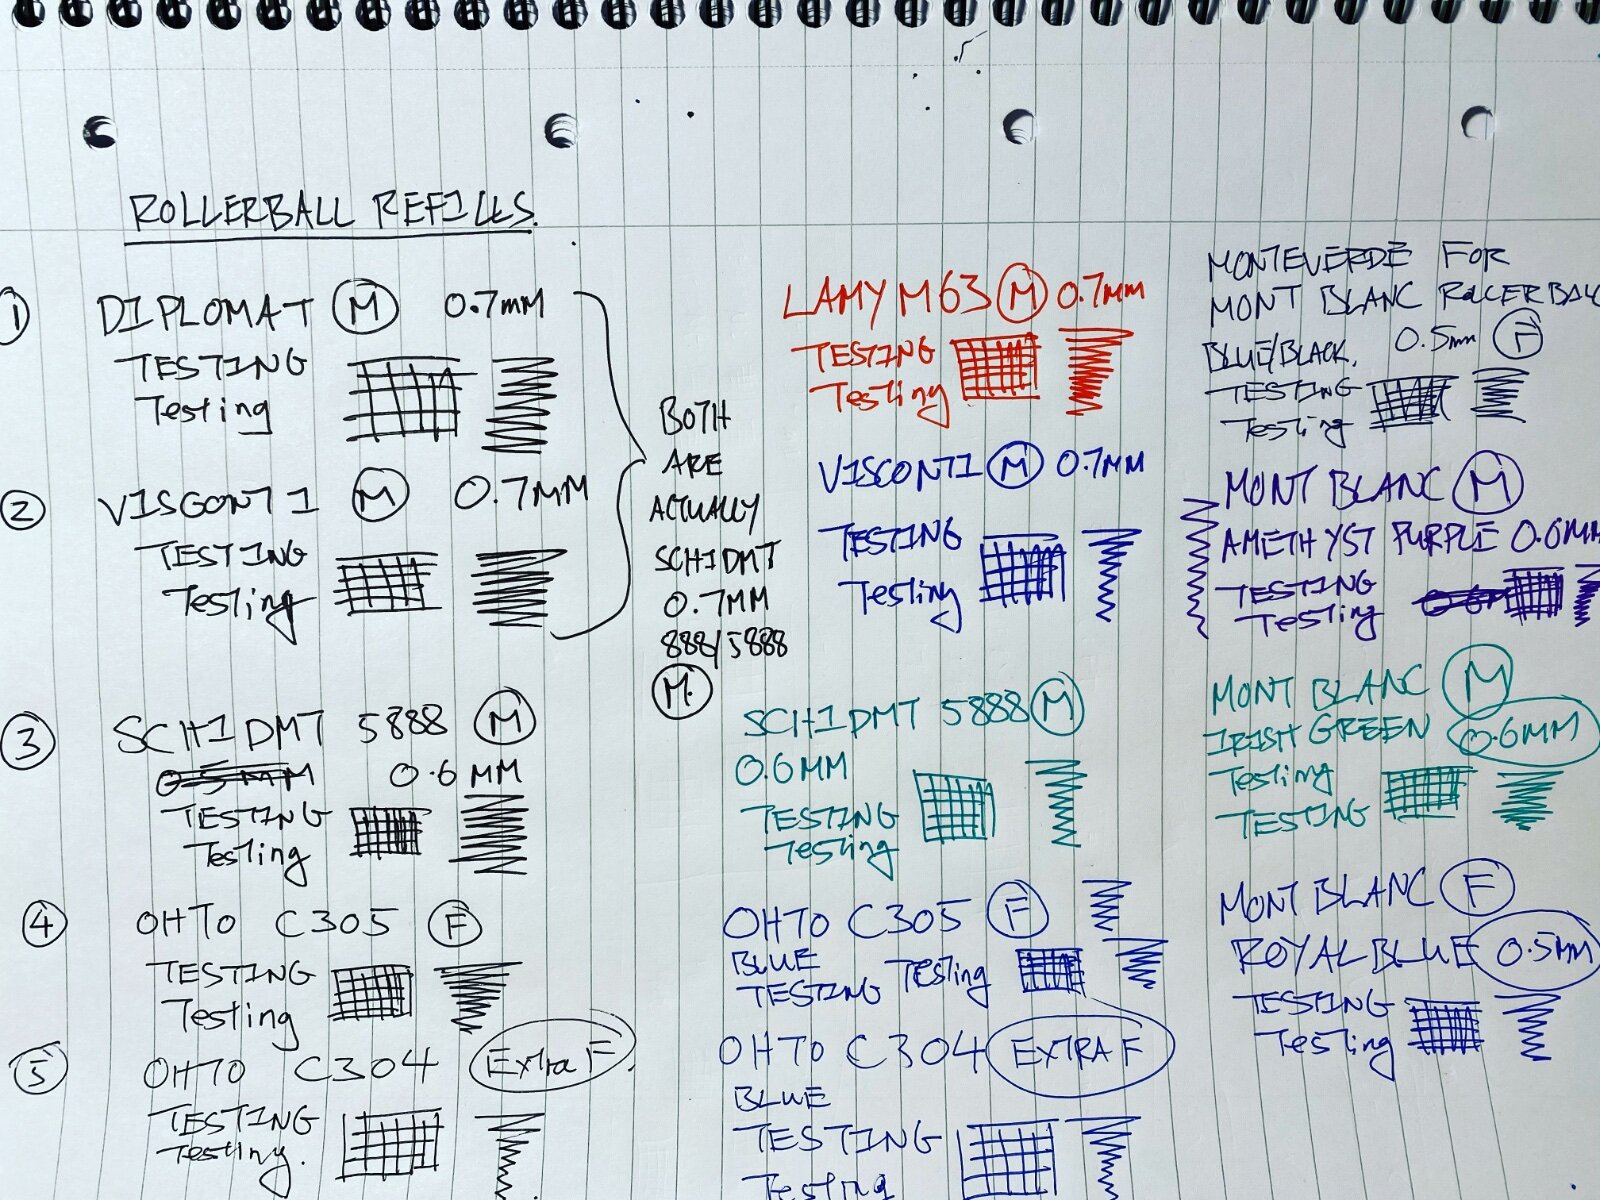 ROLLERBALL REFILLS.
① DIPLOMAT Ⓜ 0.7MM
TESTING
Testing
② VISCONTI Ⓜ 0.7MM
TESTING
Testing
BOTH
ARE
ACTUALLY
SCHIDMT
0.7MM
888/5888
Ⓜ.
③ SCHIDMT 5888 Ⓜ
0.5MM 0.6MM
TESTING
Testing
④ OHTO C305 Ⓕ
TESTING
Testing
⑤ OHTO C304 Extra F
TESTING
Testing.
LAMY M63 Ⓜ 0.7MM
TESTING
Testing
VISCONTI Ⓜ 0.7MM
TESTING
Testing
SCHIDMT 5888 Ⓜ
0.6MM
TESTING
Testing
OHTO C305 Ⓕ
BLUE
TESTING Testing
OHTO C304 EXTRA F
BLUE
TESTING
Testing
MONTEVERDE FOR
MONT BLANC ROLLERBALL
BLUE/BLACK. 0.5mm Ⓕ
TESTING
Testing
MONT BLANC Ⓜ
AMETHYST PURPLE 0.6MM
TESTING
Testing
MONT BLANC Ⓜ
IRISH GREEN 0.6MM
Testing
TESTING
MONT BLANC Ⓕ
ROYAL BLUE 0.5MM
TESTING
Testing